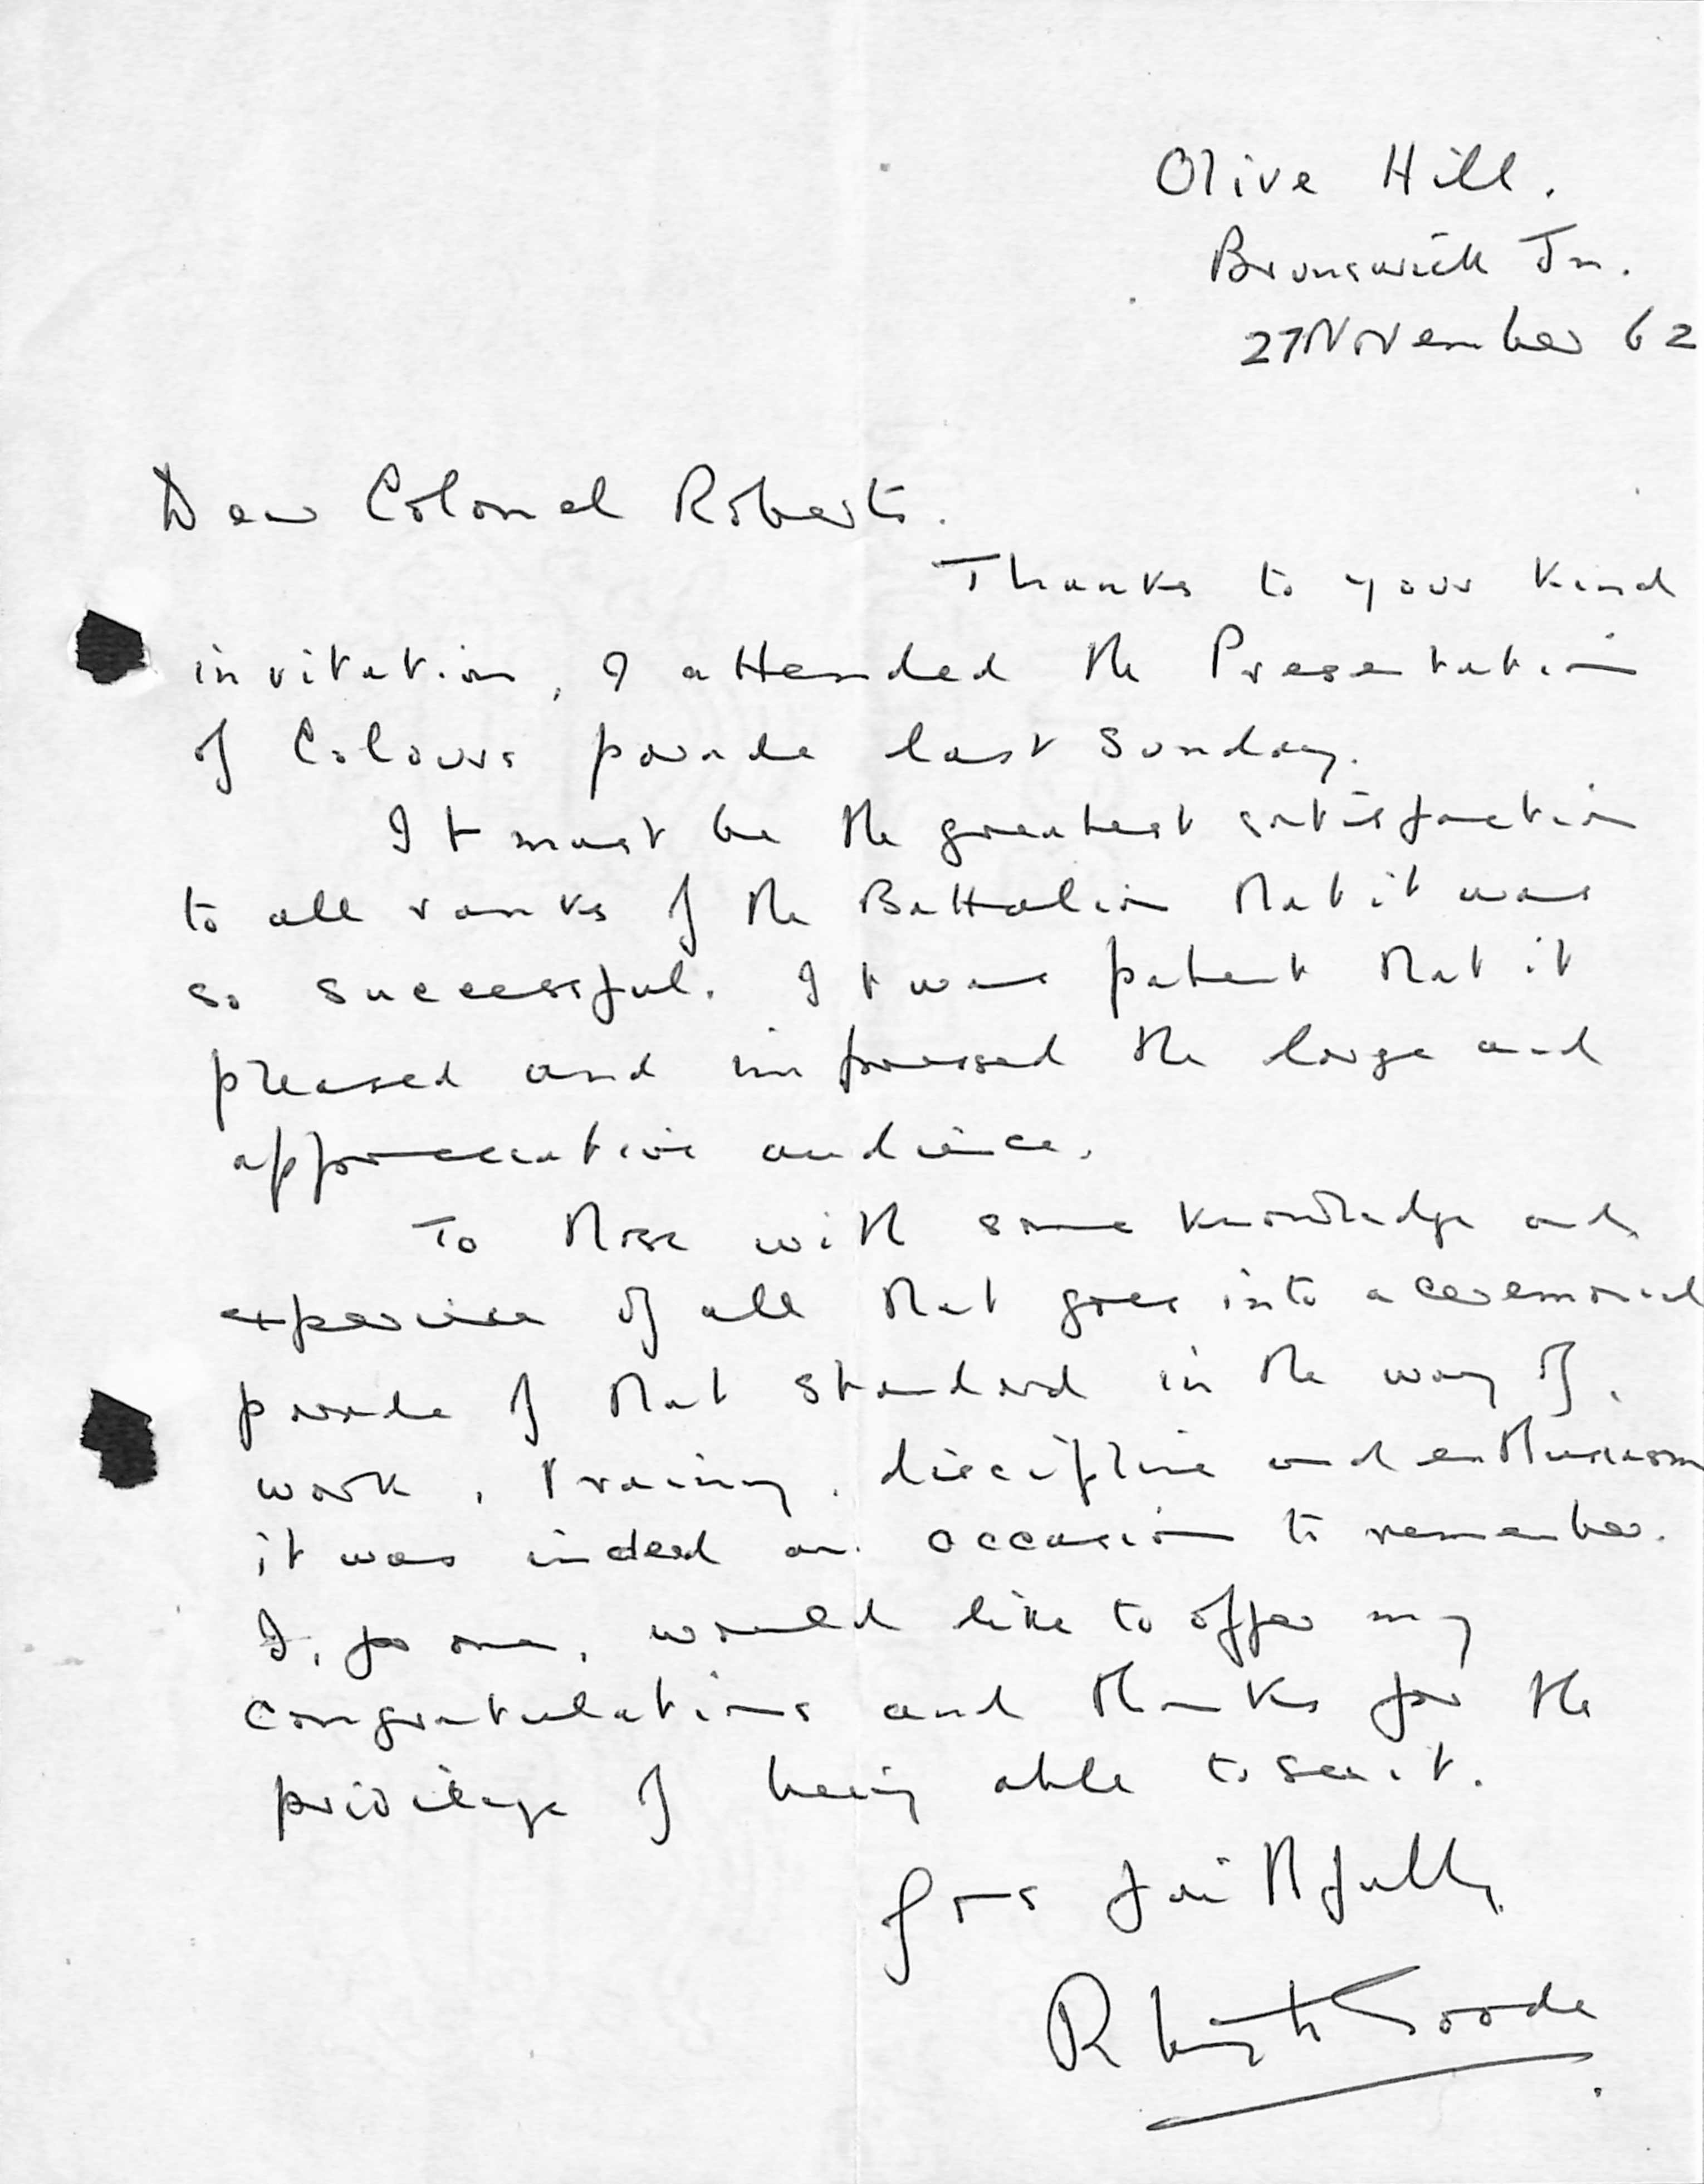 Olive Hill.
Brunswick Jn.
27 November 62
Dear Colonel Roberts.
Thanks to your kind
invitation, I attended the Presentation
of Colours parade last Sunday.
It must be the greatest satisfaction
to all ranks of the Battalion that it was
so successful. It was patent that it
pleased and impressed the large and
appreciative audience.
To those with some knowledge and
experience of all that goes into a ceremonial
parade of that standard in the way of,
work, training, discipline and enthusiasm
it was indeed an occasion to remember.
I, for one, would like to offer my
congratulations and thanks for the
privilege of being able to see it.
Yours faithfully,
R